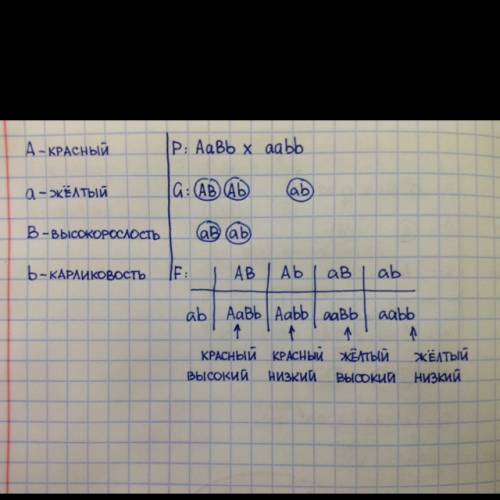 А - КРАСНЫЙ
а - ЖЁЛТЫЙ
В - ВЫСОКОРОСЛОСТЬ
b - КАРЛИКОВОСТЬ
P: AaBb x aabb
G: AB Ab ab
aB ab
F: AB Ab aB ab
ab AaBb Aabb aaBb aabb
КРАСНЫЙ КРАСНЫЙ ЖЁЛТЫЙ ЖЁЛТЫЙ
ВЫСОКИЙ НИЗКИЙ ВЫСОКИЙ НИЗКИЙ